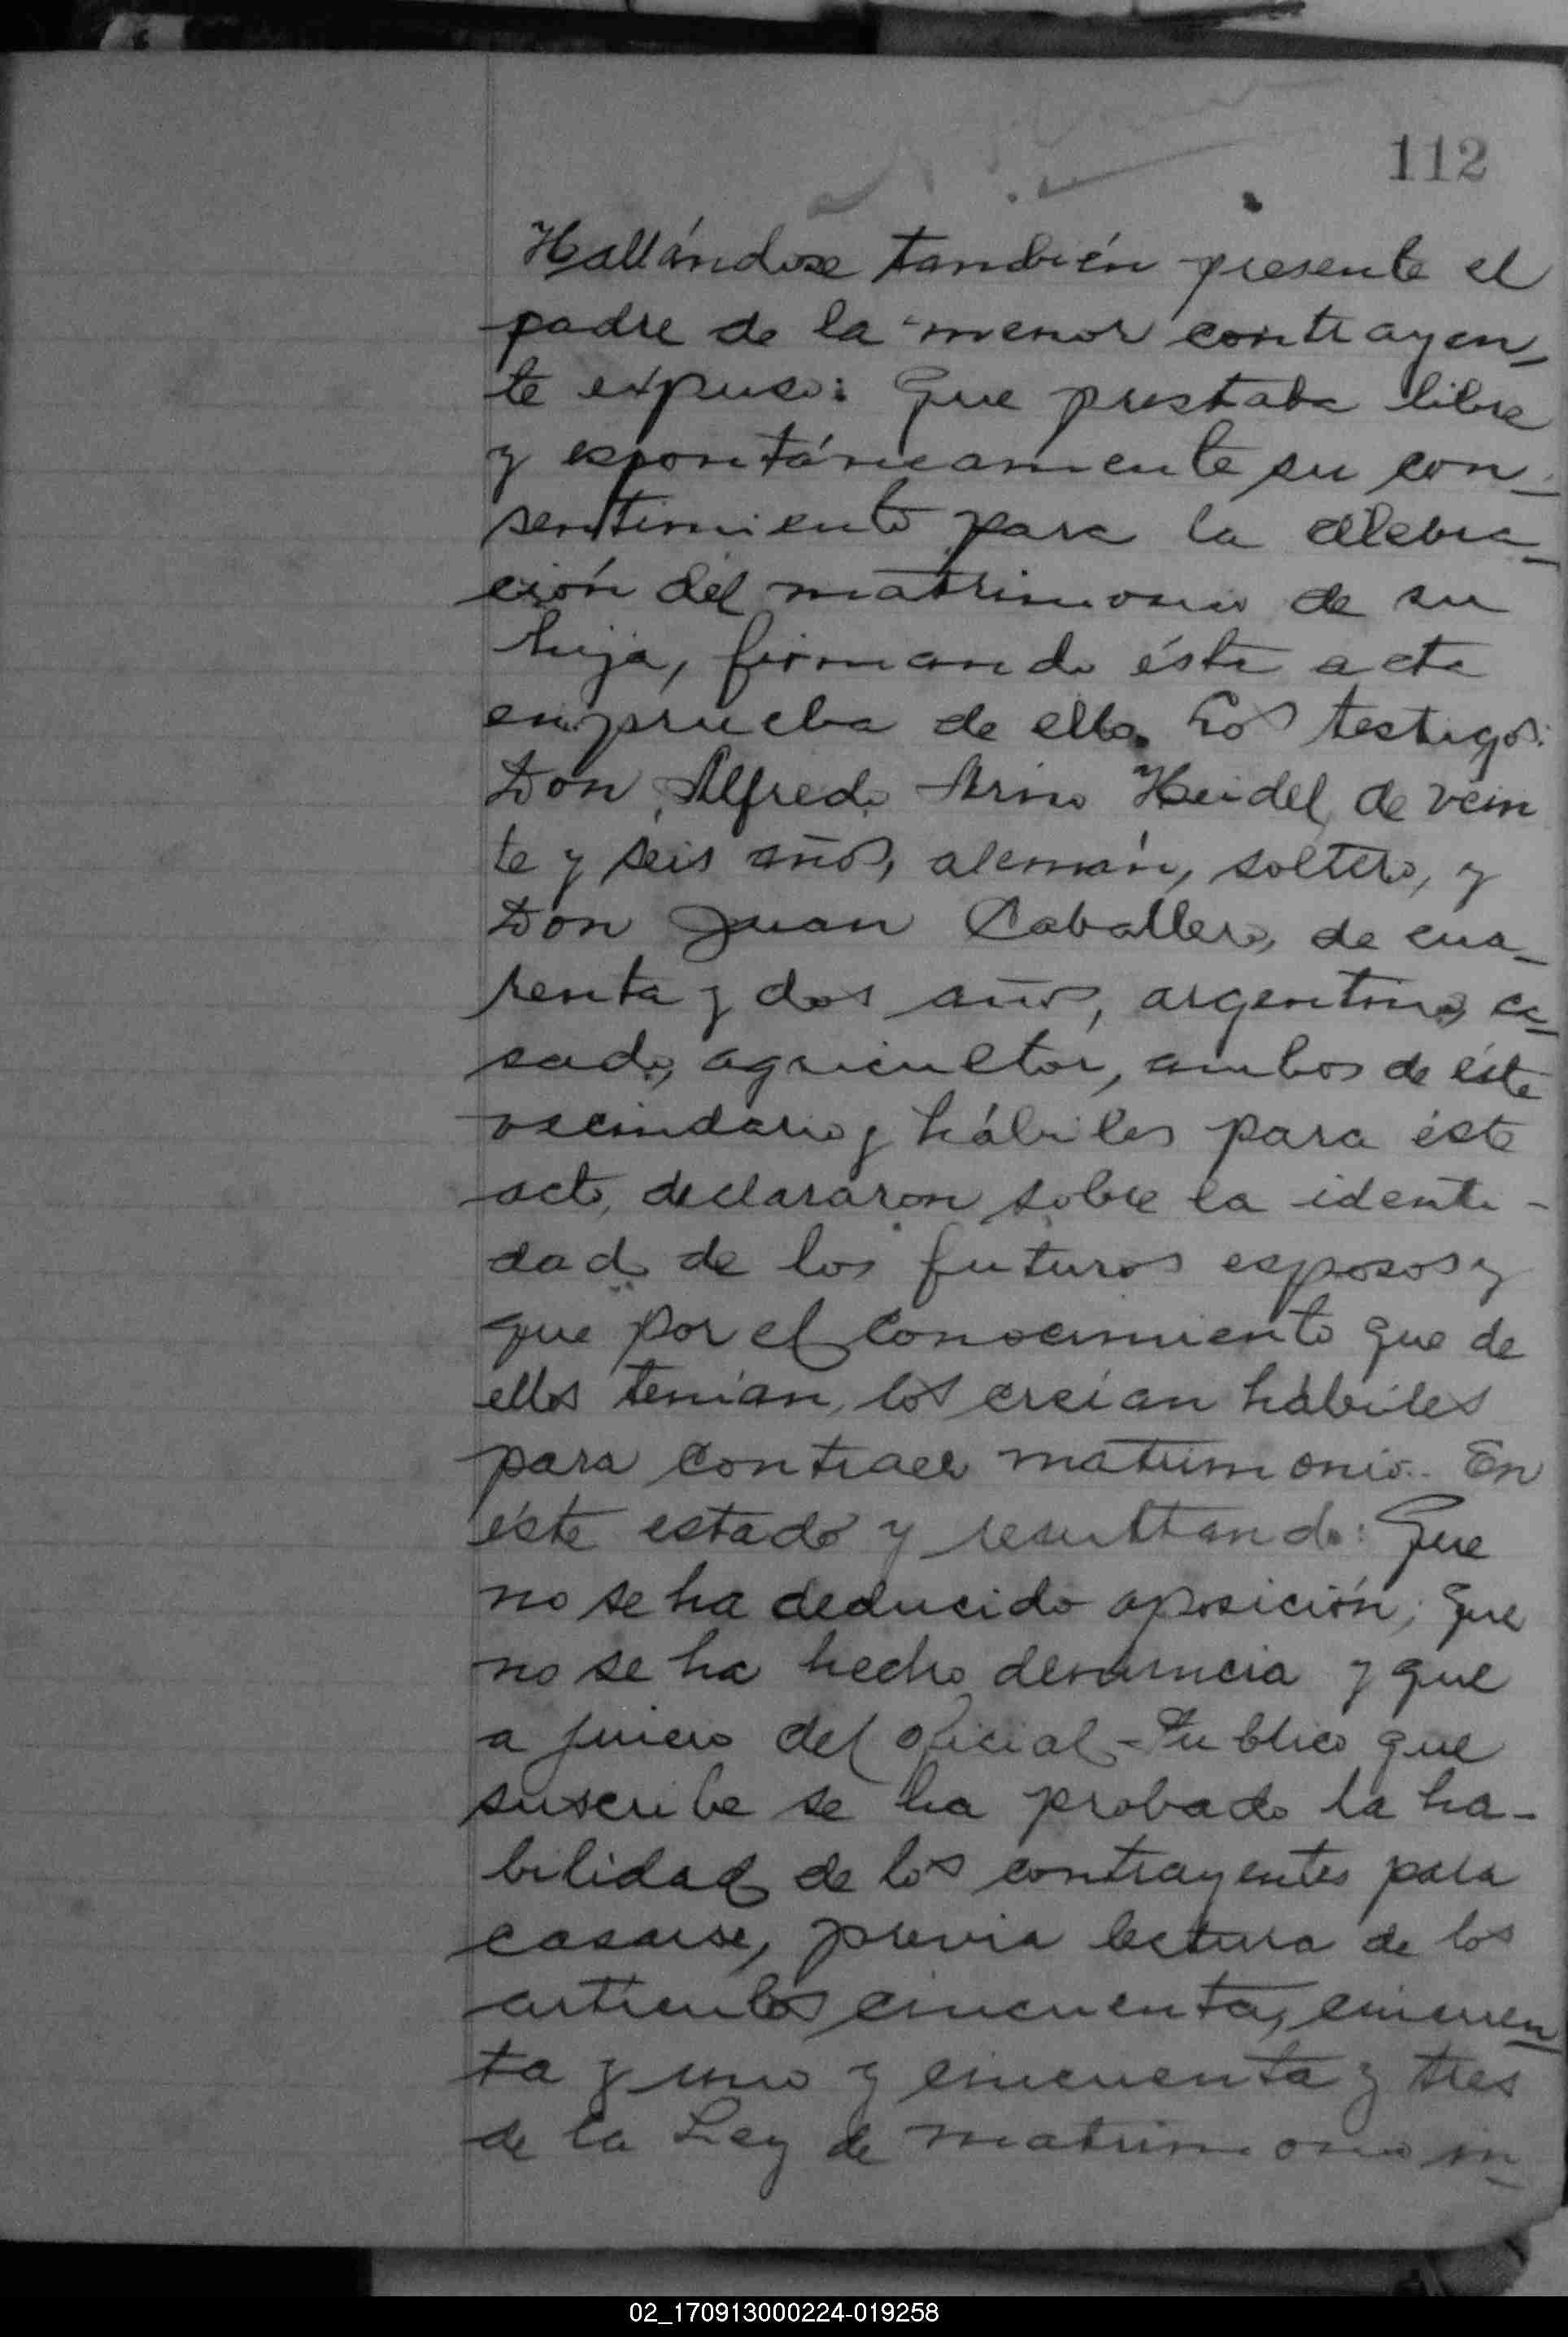 112
Hallándose también presente el
padre de la menor contrayen-
te expuso: Que prestaba libre
y espontáneamente su con-
sentimiento para la celebra-
ción del matrimonio de su
hija, firmando ésta acta
en prueba de ello. Los testigos:
Don Alfredo Arno Heidel, de vein
te y seis años, alemán, soltero, y
Don Juan Caballero, de cua-
renta y dos años, argentino, ca-
sado, agricultor, ambos de éste
vecindario y hábiles para éste
acto, declararon sobre la identi-
dad de los futuros esposos y
que por el conocimiento que de
ellos tenían, los creían hábiles
para contraer matrimonio. En
éste estado y resultando: Que
no se ha deducido oposición; que
no se ha hecho denuncia y que
a juicio del oficial Público que
suscribe se ha probado la ha-
bilidad de los contrayentes para
casarse, previa lectura de los
artículos cincuenta, cincuen-
ta y uno y cincuenta y tres
de la Ley de matrimonio in-
02_170913000224-019258